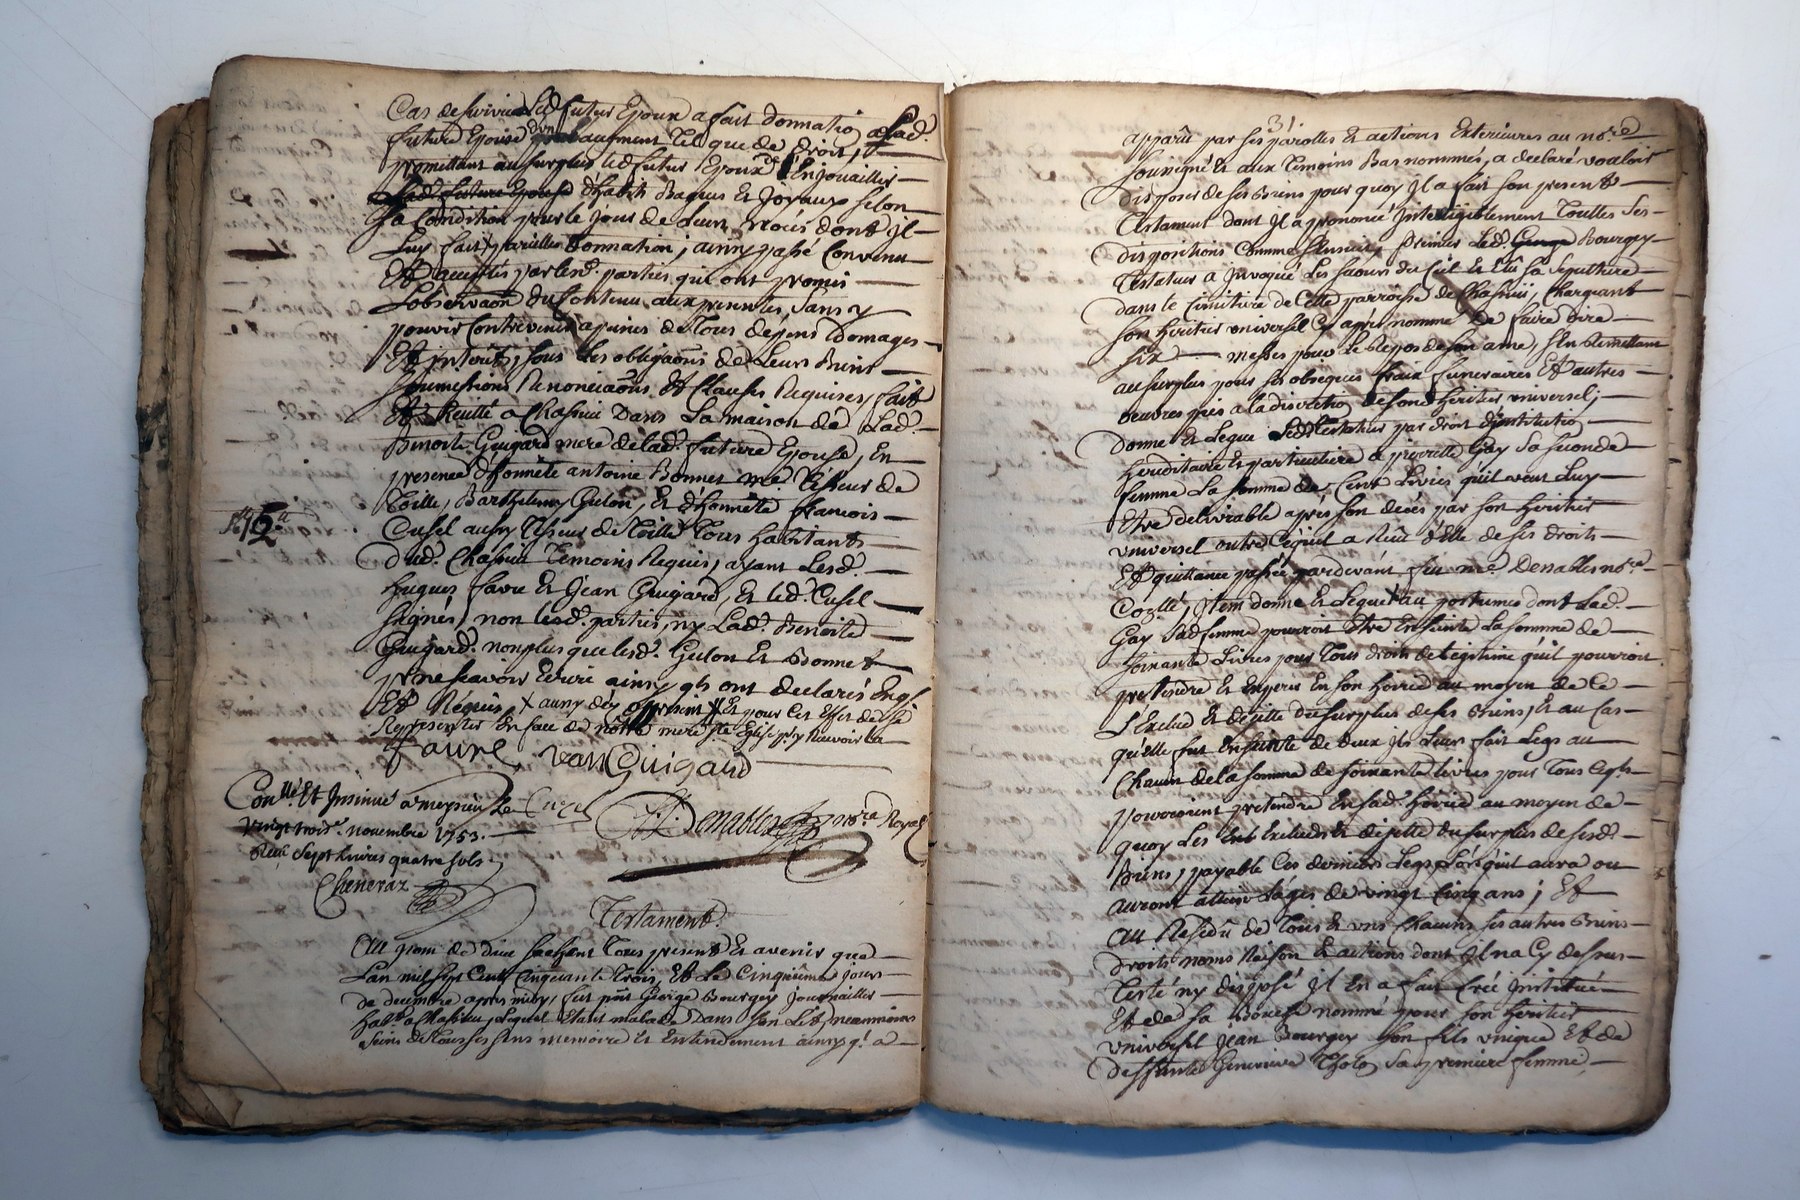 Cas de survie Led. futur Epoux a fait donnatio a Lad.
future Epouse d'un augment Tel que de droit, &
promettant au surplus led. futur Epoux d'Enjouailler
Lad. future Epouse d'habits Bagues et Joyaux selon
Sa Condition pour le jour de Leurs nôces dont il
Luy fait pareilles donnation, ainsy passé Convenu
Et accepté par lesd. parties qui ont promis
L'observaon du Contenu aux presentes, sans y
pouvoir Contrevenir a peines de Tous depens domages
Et interêts, sous les obligaons de Leurs Biens
soumissions Renonciaons et Clauses Requises, fait
Et Recitté a Chasnii Dans La maison de Lad.
Benoite Guigard mere de lad. future Epouse, En
presence d'honnête antoine Bonnet me. Tisseur de
Toille, Barthelemy Gulon, et d'honnête francois
Cusel aussy Tisseur de Toille Tous habitants
Dud. Chasnii Temoins Requis, ayant Lesd.
hugues favre et Jean Guigard, et led. Cusel
signés, non lesd. parties, ny Lad. Benoite
Guigard. non plus que lesd. Gulon et Bonnet
pr. ne scavoir Ecrire ainsy qls ont declarés Enqs.
Et Réquis X aussy dey present X Et pour Cet Effet de se
Representer En face de nottre mere Ste. Eglise py Recevoir la
faure Jean Guigard
Conllé. Et Insinué a meysieu Le Cuzel
vingt trois. novembre 1753. A. Denables nore. Royal
Recu sept livres quatre sols
Cheneraz
Testament.
Au nom de dieu sachent Tous presents et avenir que
L'an mil sept Cent Cinquante Trois, et le Cinquième jour
de decembre apres midy, fut pnt George Bourgey Journallier
habtt a Chasnii, Lequel Etant malade Dans son Lit, neanmoins
Sains de Tous ses sens memoire et Entendement ainsy q'l a
31.
apparû par ses parolles et actions Exterieures au nore.
soussigné et aux Temoins Bas nommés, a declaré vouloir
disposer de ses Biens pour quoy Il a fait son present
Testament dont Il a prononcé Intelligiblement Touttes Ses
dispositions Comme s'ensuit, Primier Led. George Bourgey
Testateur a Invoqué Les faveurs du Ciel et Elû sa sepulture
dans le Cimitiere de Cette parroisse de Chasnii, Chargeant
son heritier universel Cy aprés nommé De faire dire
six messes pour Le Repos de son ame, s'En Remettant
au surplus pour ses obseques fraix funeraires et autres
oeuvres pies a la discretio de sond. heritier universel;
Donne et Legue Led. Testateur par droit d'Institutio
hereditaire et particuliere a pierrette Gay Sa seconde
femme La somme de Cent Livres qu'il veut Luy
Etre delivrable aprés son décés par son heritier
universel outre Ce qu'il a Reçû d'Elle de ses droits
Et quittance passée pardevant feu me. Denables nore.
Collé, Item donne et Legue X au postumes dont Lad.
Gay Sad. femme pourroit être Enseinte La somme de
soixante Livres pour Tous droits de Legitime qu'il pourroit
pretendre et Esperer En son hoirie au moyen de Ce
L'Exclud et déjette du surplus de ses Biens, et au Cas
qu'elle fut Enseinte de deux Il Leur fait Legs au
Chacun de la somme de soixante livres pour Tous Ce qls
pourroient pretendre En sad. hoirie au moyen de
quoy Les Exclud et déjette du surplus de sesd.
Biens, payable Ces derniers Legs Lorsqu'il aura ou
auront atteint L'âge de vingt Cinq ans; Et
Au Residû de Tous et uns Chacuns ses autres Biens
droits noms Raison et actions dont Il n'a Cy dessus
Testé ny disposé Il En a fait Créé Institué
Et de sa Bouche nommé pour son heritier
universel Jean Bourgey son fils unique Et de
deffunte Genevieve Tholo Sa premiere femme